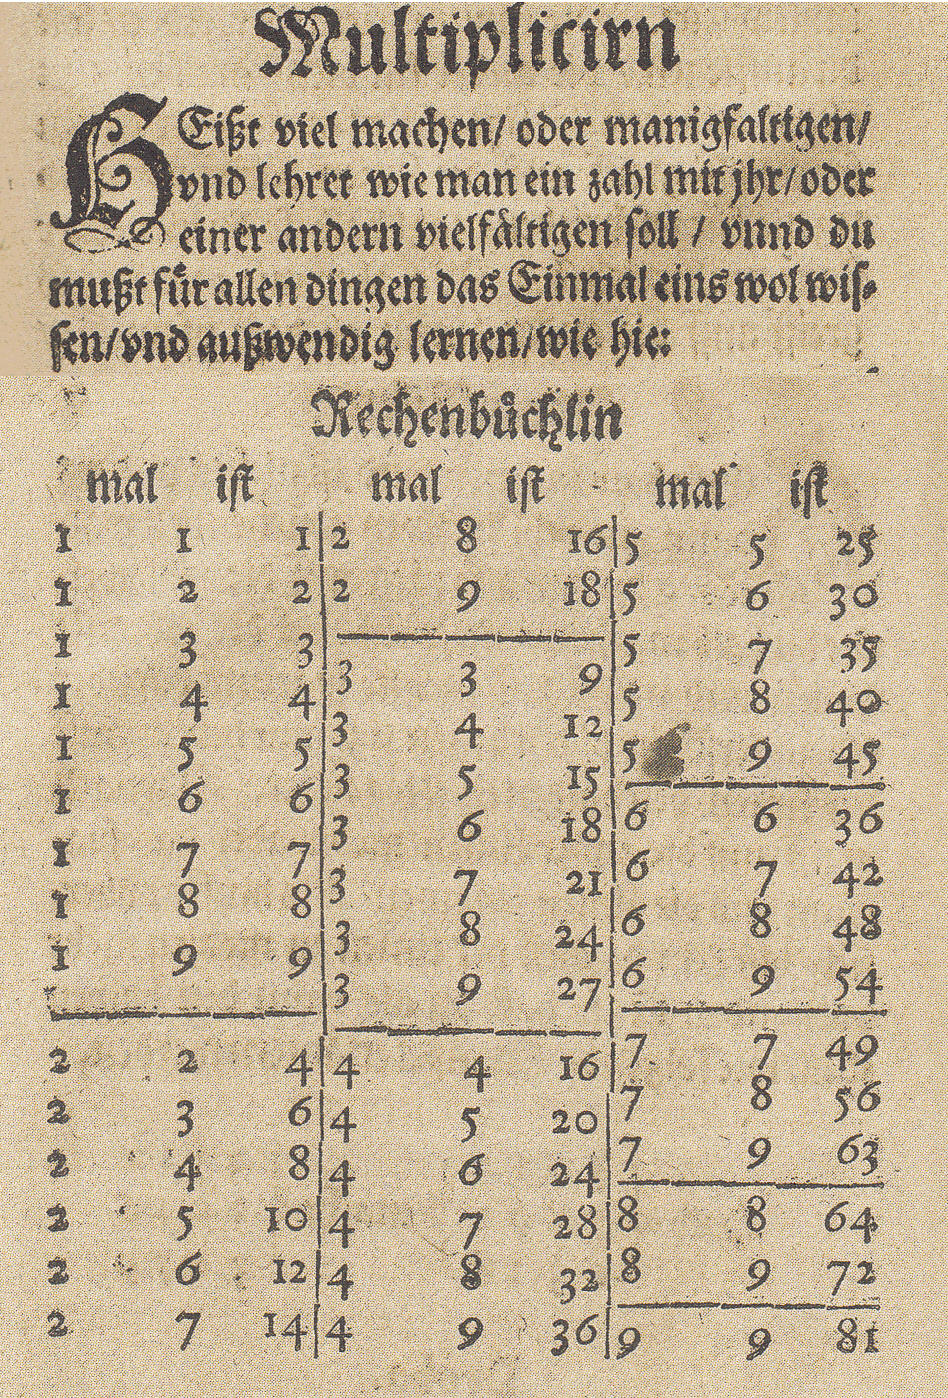 Multiplicirn
HEißt viel machen/ oder manigfaltigen/
vnd lehret wie man ein zahl mit jhr/ oder
einer andern vielfältigen soll / vnnd du
mußt für allen dingen das Einmal eins wol wis-
sen/ vnd außwendig lernen/ wie hie:
Rechenbüchlin
mal ist mal ist mal ist
1 1 1
1 2 2
1 3 3
1 4 4
1 5 5
1 6 6
1 7 7
1 8 8
1 9 9
2 2 4
2 3 6
2 4 8
2 5 10
2 6 12
2 7 14
2 8 16
2 9 18
3 3 9
3 4 12
3 5 15
3 6 18
3 7 21
3 8 24
3 9 27
4 4 16
4 5 20
4 6 24
4 7 28
4 8 32
4 9 36
5 5 25
5 6 30
5 7 35
5 8 40
5 9 45
6 6 36
6 7 42
6 8 48
6 9 54
7 7 49
7 8 56
7 9 63
8 8 64
8 9 72
9 9 81